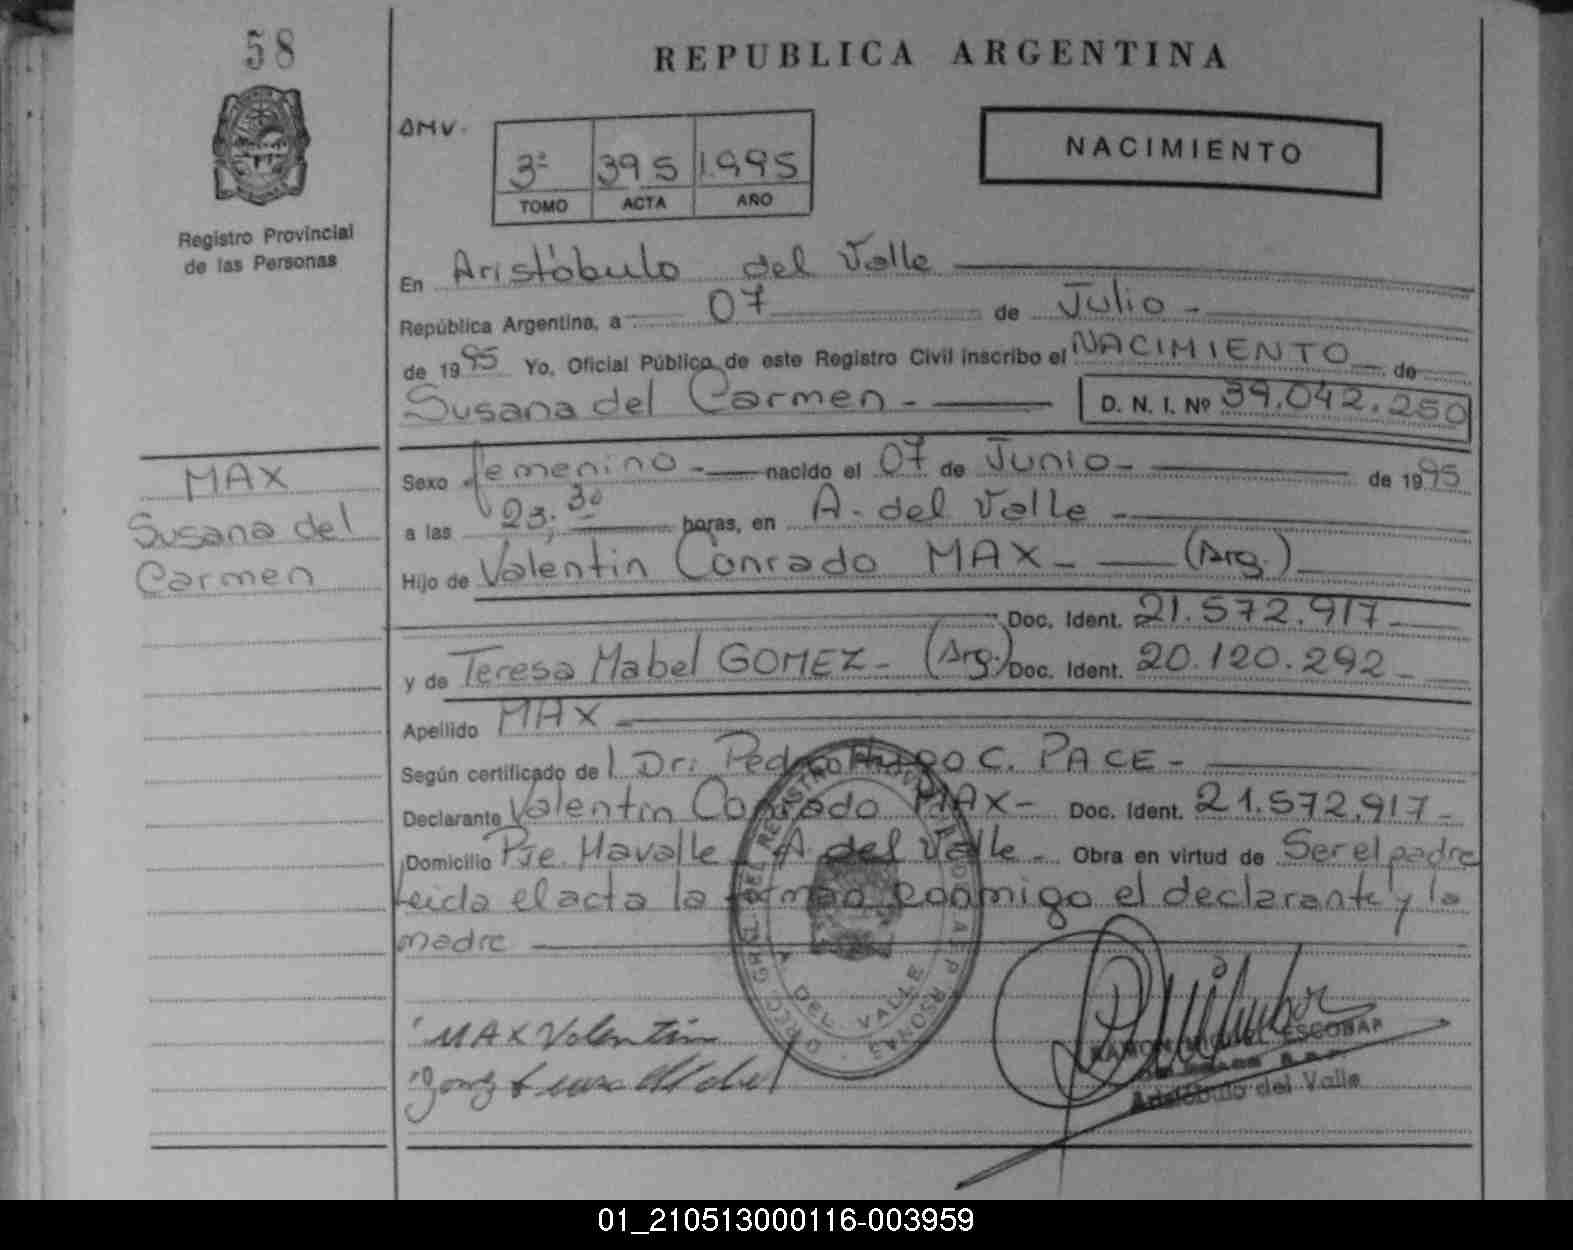 58
REPUBLICA ARGENTINA
DMV.
3ª 395 1.995
TOMO ACTA AÑO
NACIMIENTO
Registro Provincial
de las Personas
En Aristóbulo del Valle
República Argentina, a 07 de Julio -
de 1995 Yo, Oficial Público de este Registro Civil inscribo el NACIMIENTO de
Susana del Carmen - D. N. I. Nº 39.042.250
MAX
Susana del
Carmen
Sexo femenino - nacido el 07 de Junio - de 1995
a las 23:30 horas, en A. del Valle -
Hijo de Valentin Conrado MAX - (Arg.)
Doc. Ident. 21.572.917 -
y de Teresa Mabel GOMEZ - (Arg.) Doc. Ident. 20.120.292 -
Apellido MAX -
Según certificado del Dr. Pedro Hugo C. PACE -
Declarante Valentin Conrado MAX - Doc. Ident. 21.572.917 -
Domicilio Pje. Mavalle - A. del Valle - Obra en virtud de Ser el padre
Leida el acta la firman conmigo el declarante y la
madre
DEL VALLE
MAX Valentin
RAMON MIGUEL ESCOBAR
Aristóbulo del Valle
01_210513000116-003959